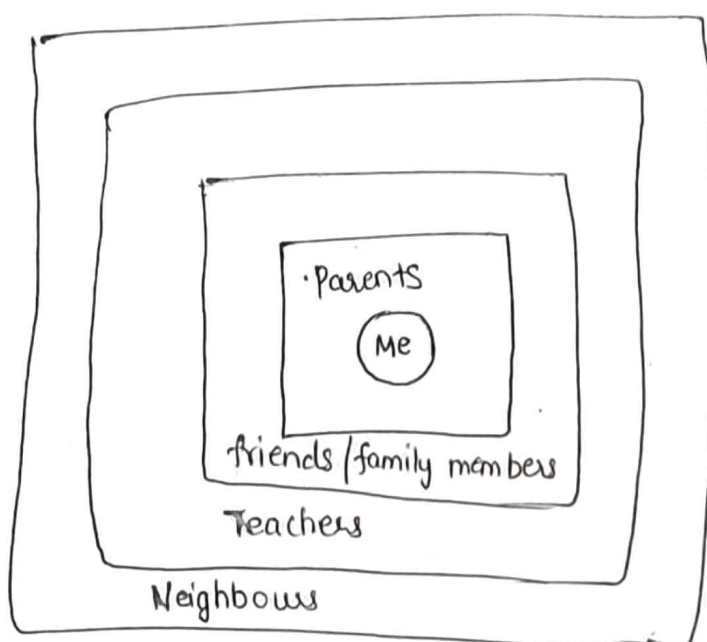 ·Parents
Me
friends/family members
Teachers
Neighbours